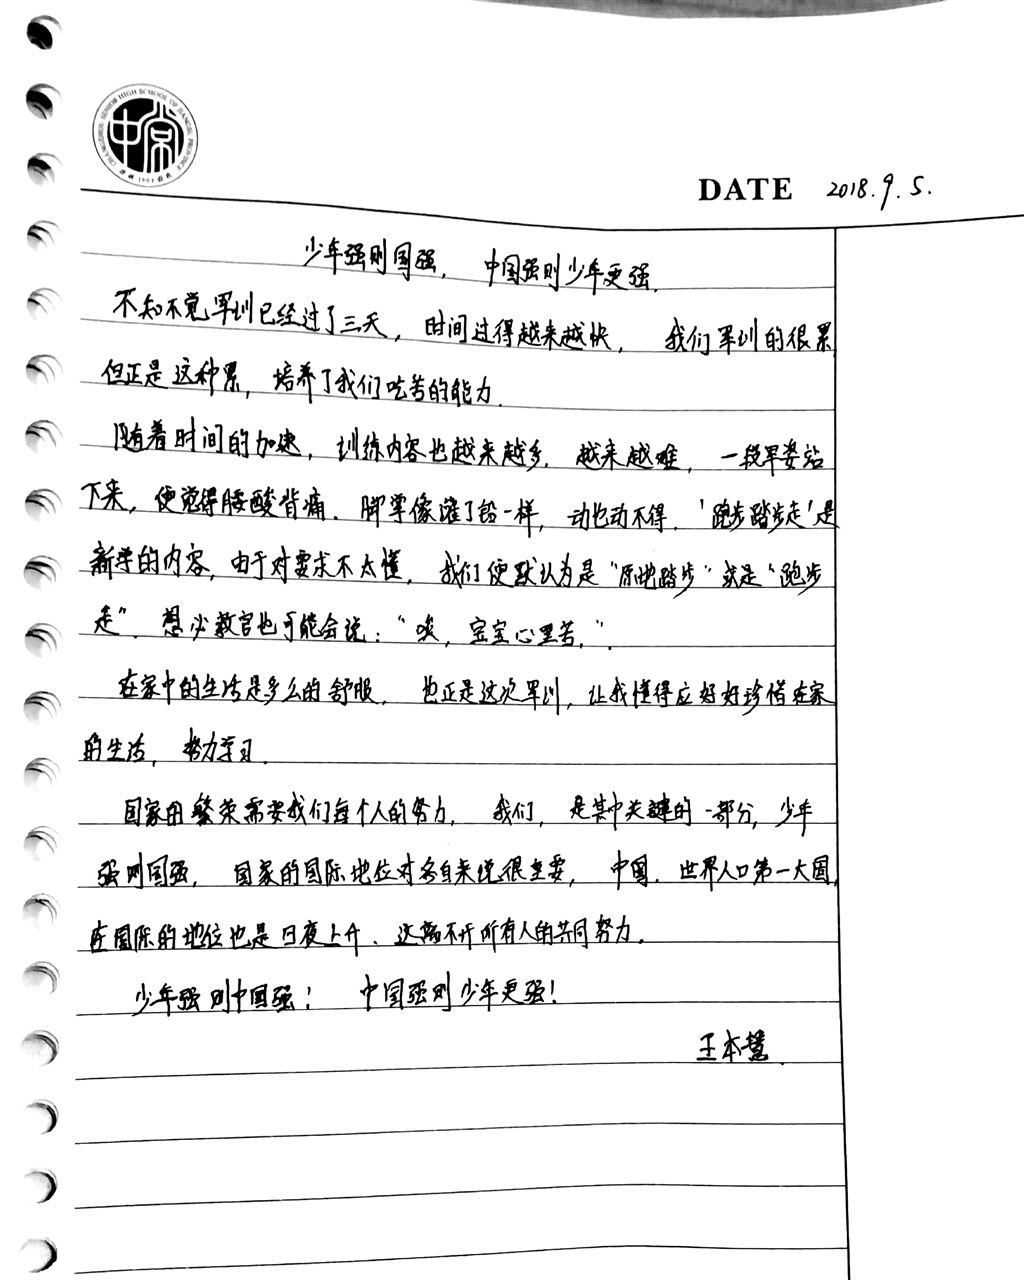 CHANGZHOU SENIOR HIGH SCHOOL OF JIANGSU PROVINCE
1907
DATE 2018.9.5.
少年强则国强，中国强则少年更强.
不知不觉军训已经过了三天，时间过得越来越快，我们军训的很累
但正是这种累，培养了我们吃苦的能力.
随着时间的加速，训练内容也越来越多.越来越难，一段军姿站
下来，便觉得腰酸背痛.脚掌像灌了铅一样，动也动不得.‘跑步踏步走’是
新学的内容，由于对要求不太懂，我们便默认为是“原地踏步“或是“跑步
走”.想必教官也可能会说：“唉，宝宝心里苦.”
在家中的生活是多么的舒服，也正是这次军训，让我懂得应好好珍惜在家
的生活，努力学习.
国家的繁荣需要我们每个人的努力，我们，是其中关键的一部分，少年
强则国强，国家的国际地位对各自来说很重要，中国.世界人口第一大国，
在国际的地位也是日夜上升、这离不开所有人的共同努力.
少年强则中国强！中国强则少年更强！
王本慧.